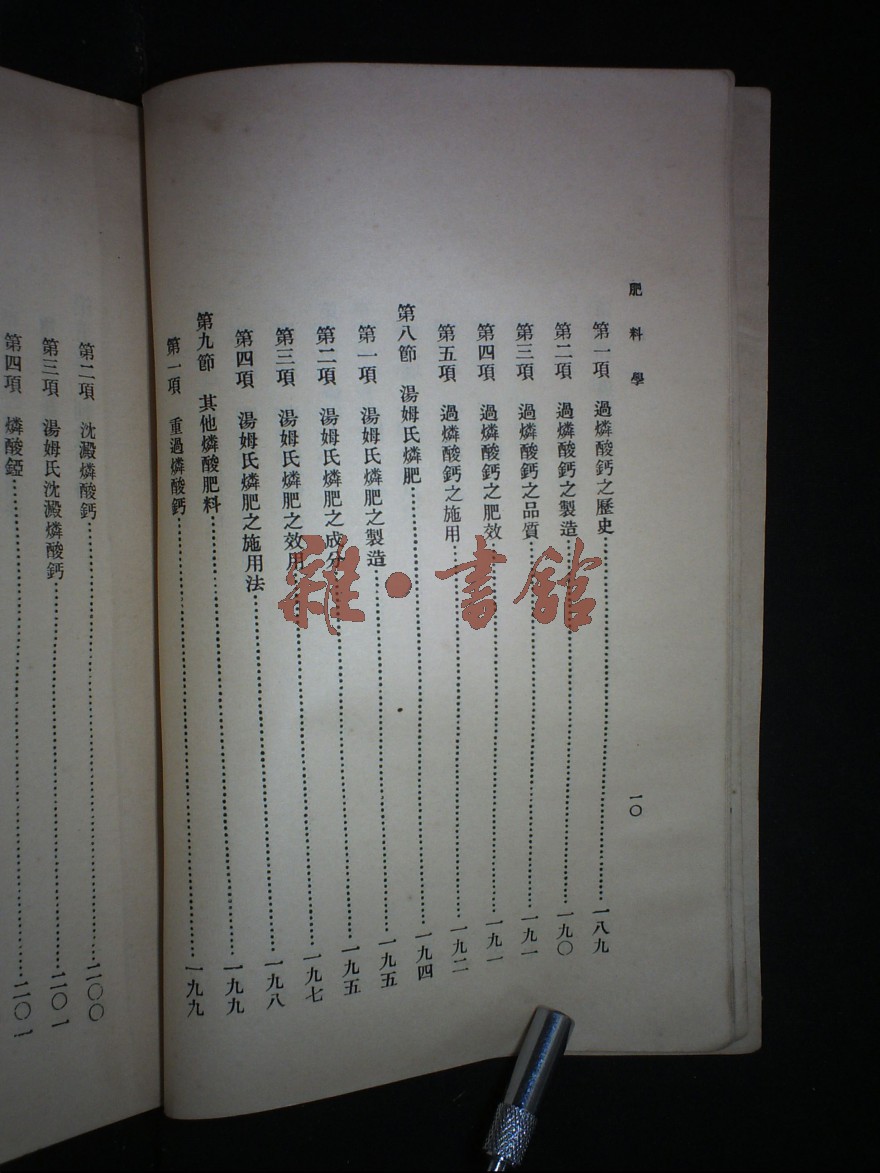 肥料學
一〇
第一項 過燐酸鈣之歷史……一八九
第二項 過燐酸鈣之製造……一九〇
第三項 過燐酸鈣之品質……一九一
第四項 過燐酸鈣之肥效……一九一
第五項 過燐酸鈣之施用……一九二
第八節 湯姆氏燐肥……一九四
第一項 湯姆氏燐肥之製造……一九五
第二項 湯姆氏燐肥之成分……一九五
第三項 湯姆氏燐肥之效用……一九七
第四項 湯姆氏燐肥之施用法……一九八
第九節 其他燐酸肥料……一九九
第一項 重過燐酸鈣……一九九
第二項 沈澱燐酸鈣……二〇〇
第三項 湯姆氏沈澱燐酸鈣……二〇一
第四項 燐酸錏……二〇一
雜·書館